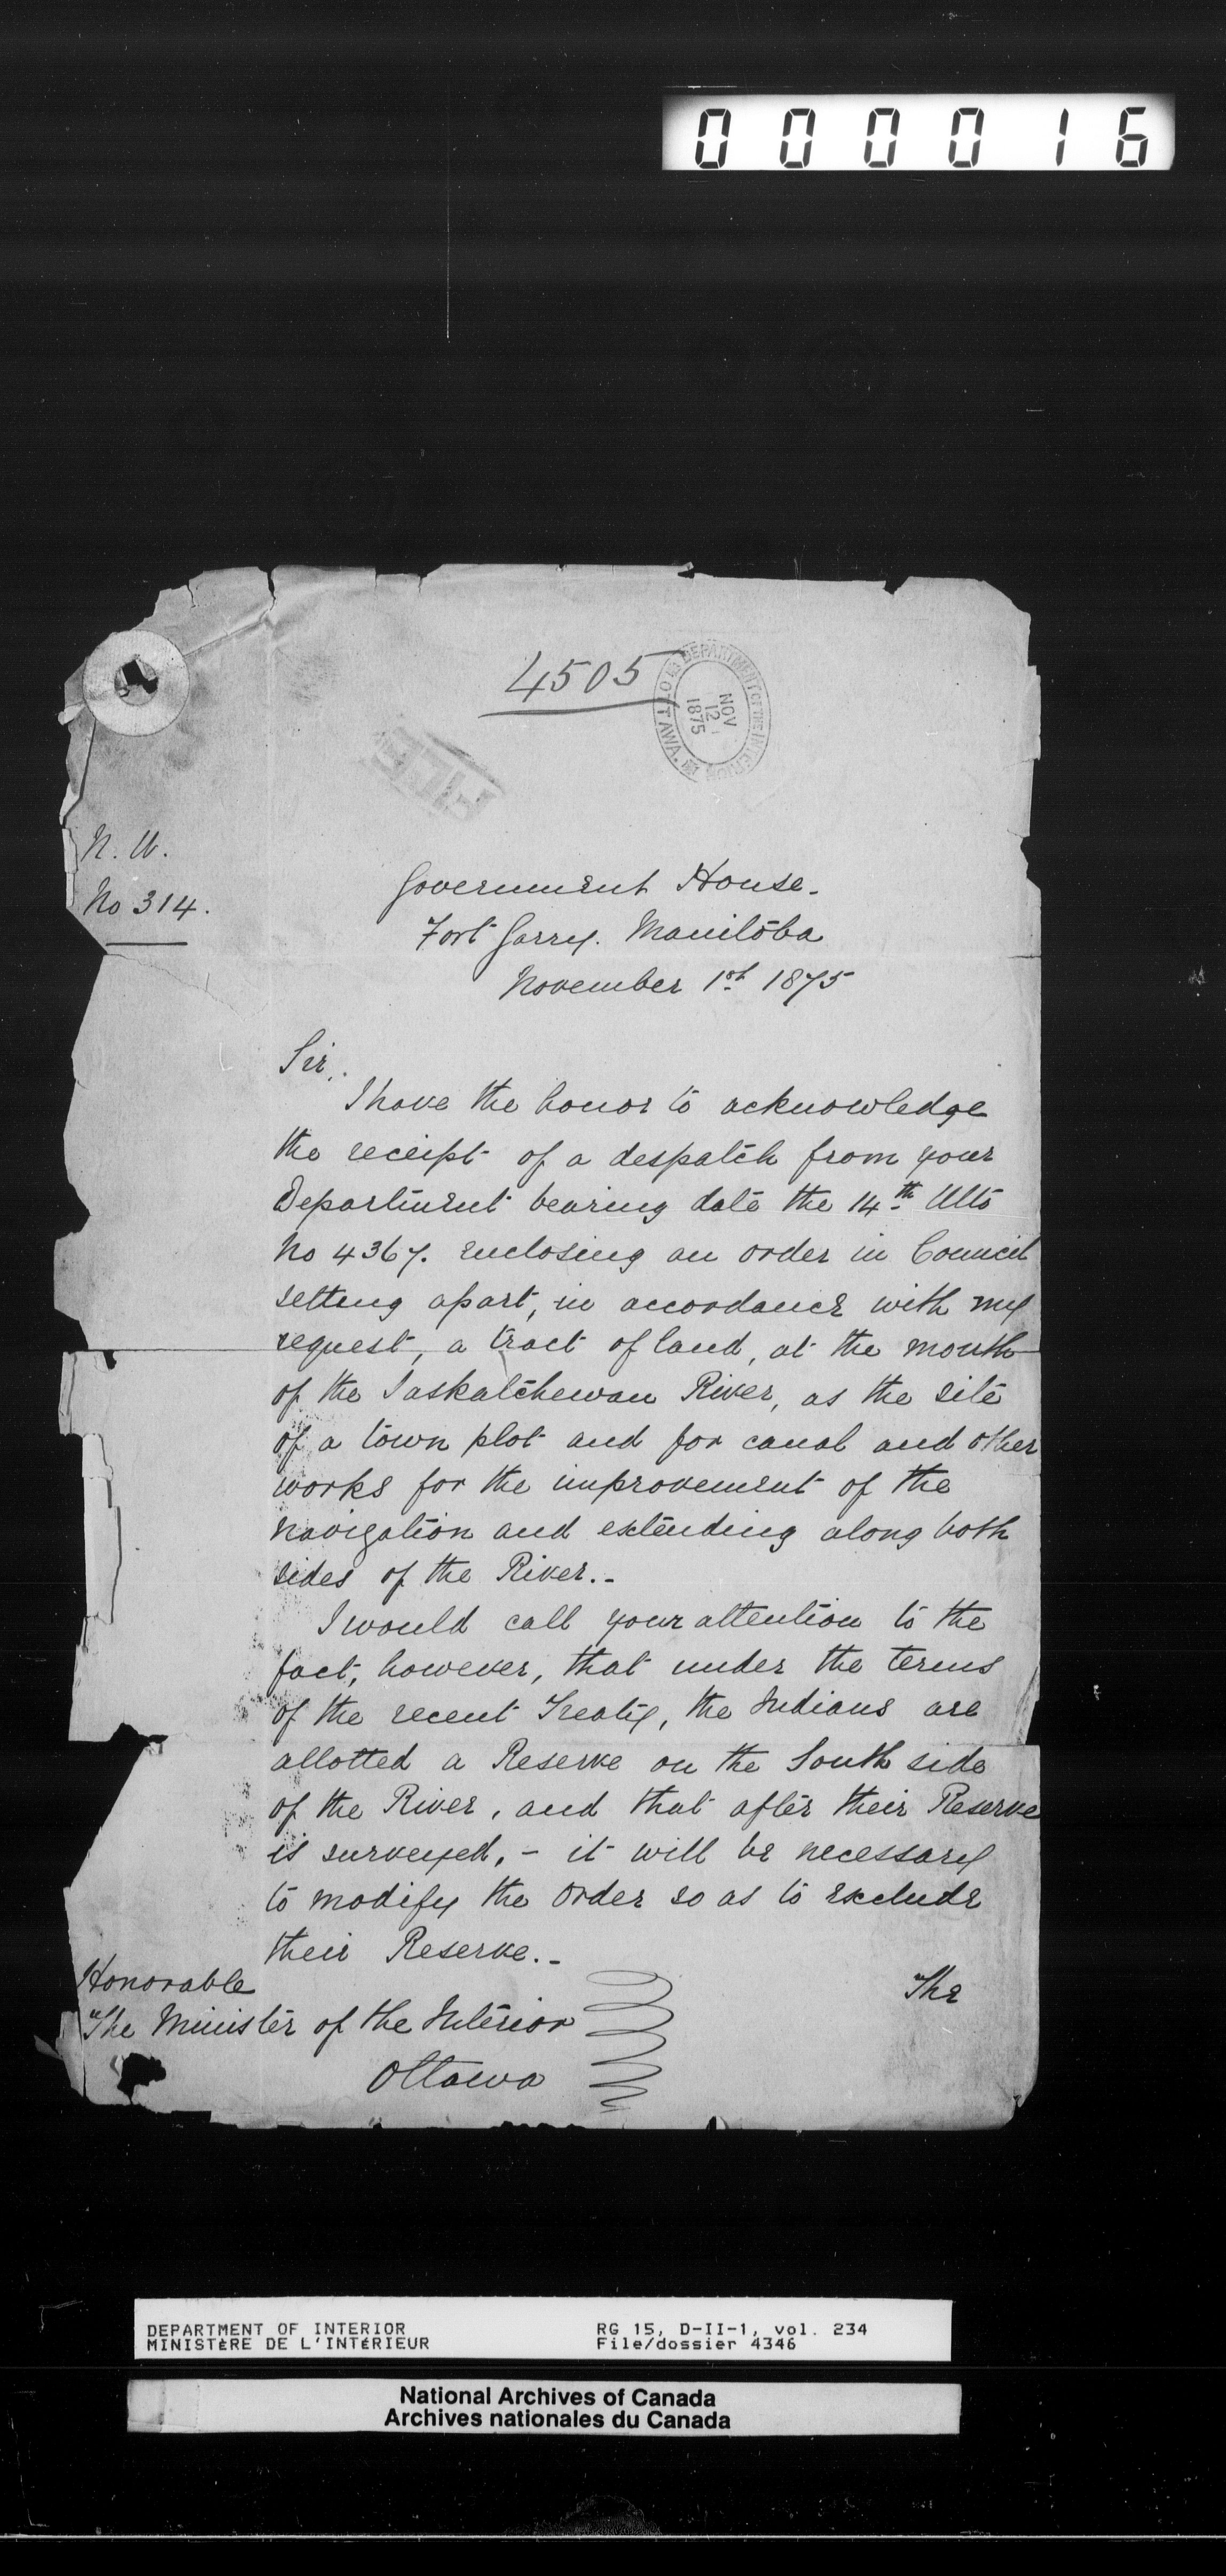 000016
4505
DEPARTMENT OF THE INTERIOR
OTTAWA.
NOV
12
1875
FILE
N. W.
No 314.
Government House.
Fort Garry. Manitoba
November 1st 1875
Sir,
I have the honor to acknowledge
the receipt of a despatch from your
Department bearing date the 14th Ulto
No 4367. enclosing an order in Council
setting apart, in accordance with my
request, a tract of land, at the mouth
of the Saskatchewan River, as the site
of a town plot and for canal and other
works for the improvement of the
navigation and extending along both
sides of the River.-
I would call your attention to the
fact, however, that under the terms
of the recent Treaty, the Indians are
allotted a Reserve on the South side
of the River, and that after their Reserve
is surveyed, - it will be necessary
to modify the Order so as to exclude
their Reserve.-
The
Honorable
The Minister of the Interior
Ottawa
DEPARTMENT OF INTERIOR RG 15, D-II-1, vol. 234
MINISTÈRE DE L'INTÉRIEUR File/dossier 4346
National Archives of Canada
Archives nationales du Canada